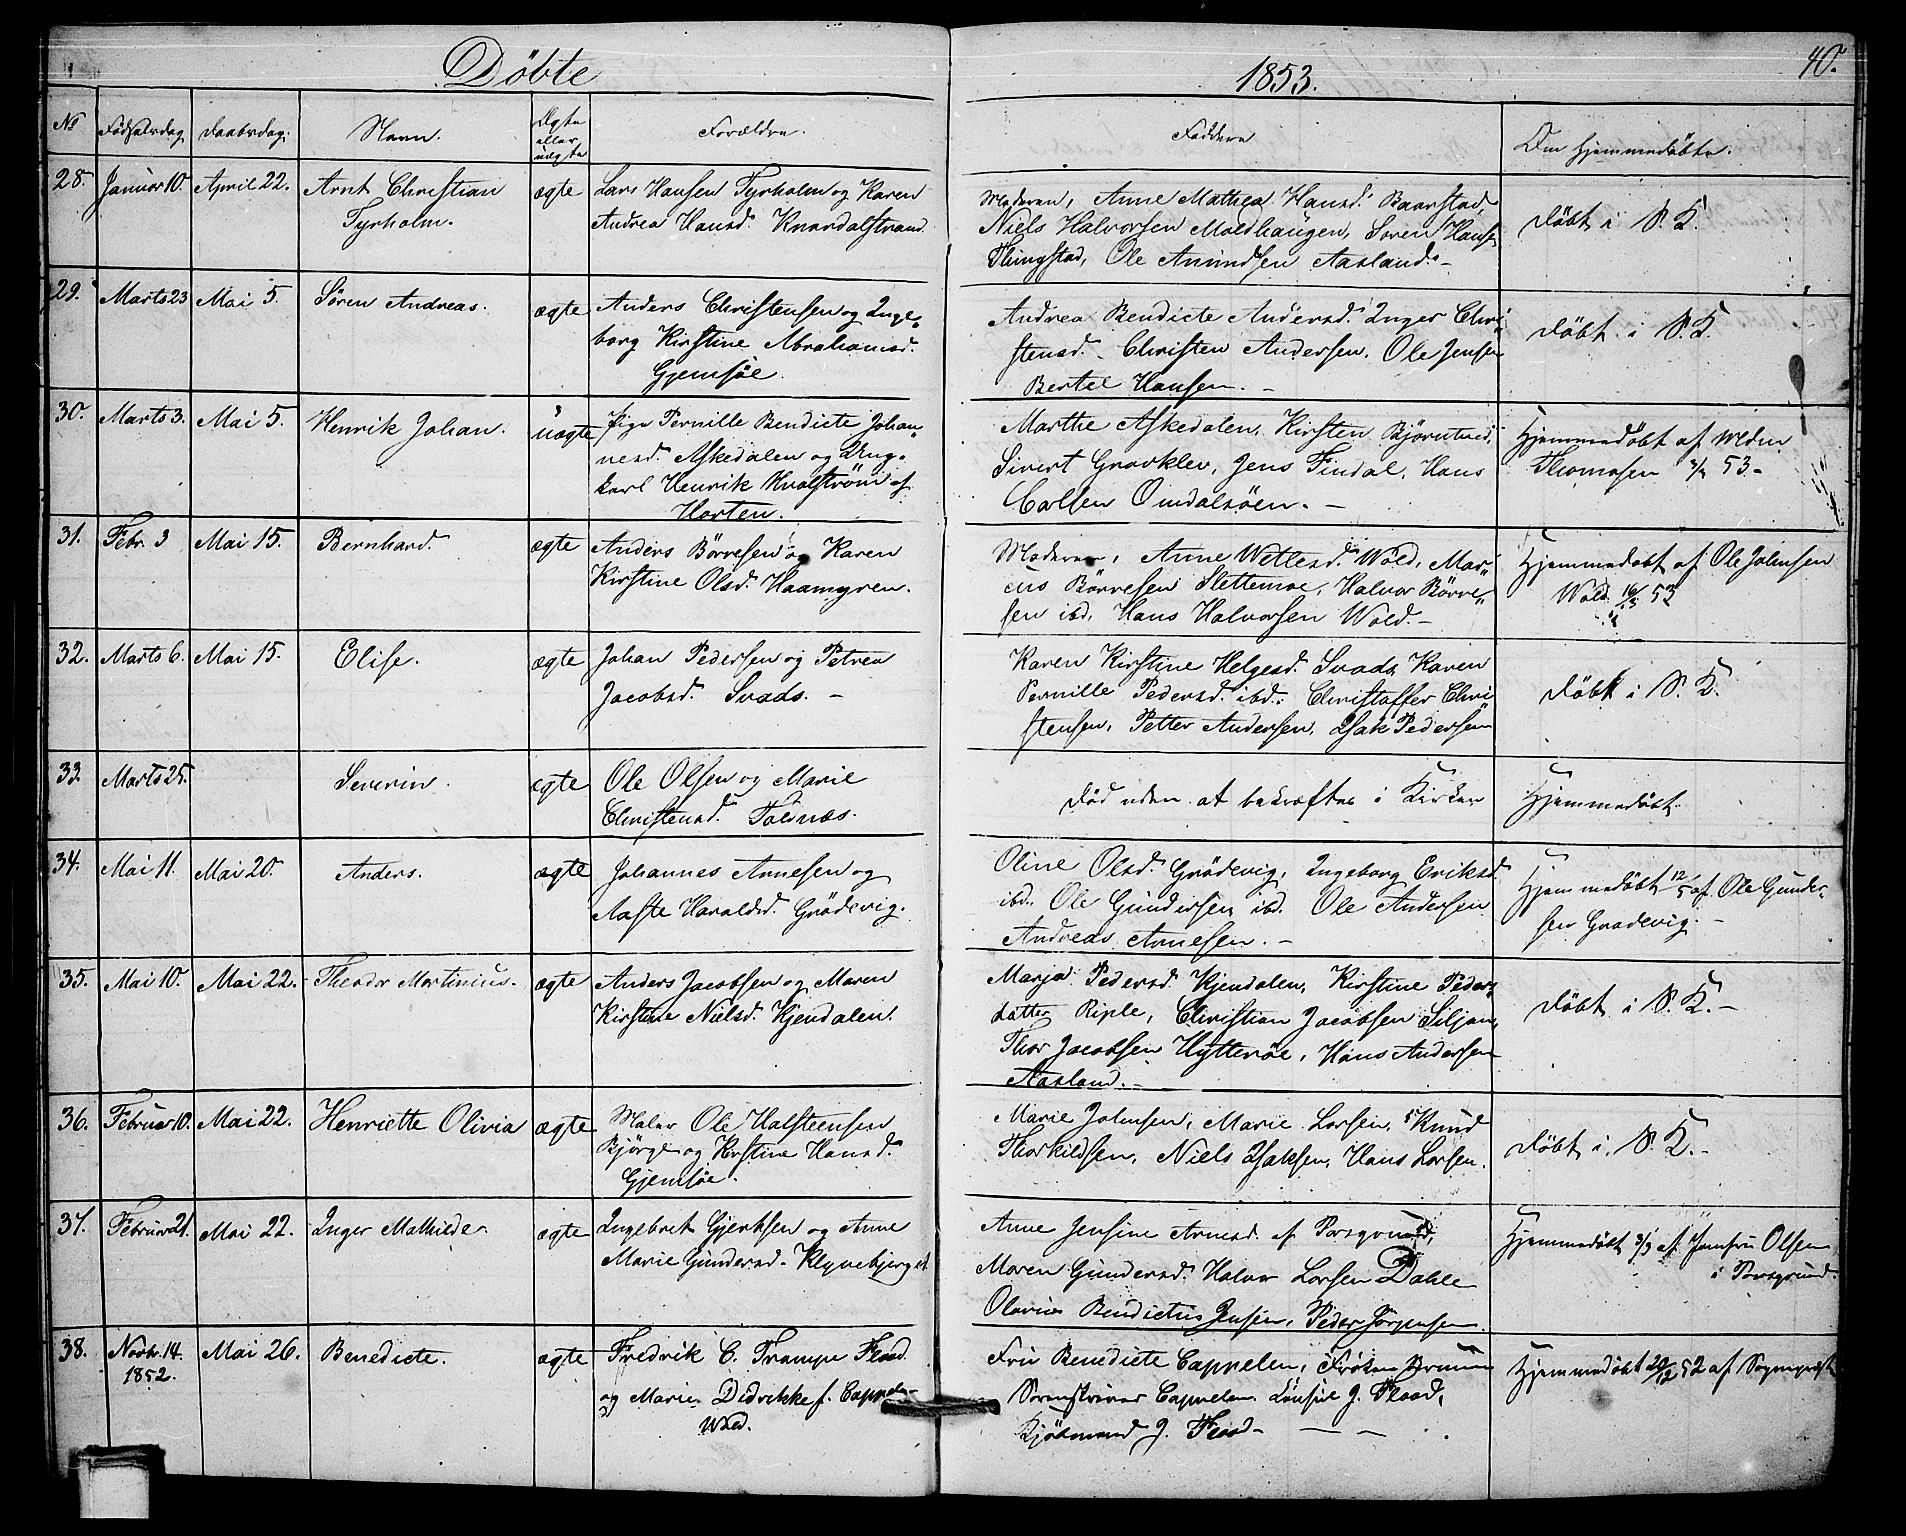 Döbte
1853.
40.
No Födselsdag Daabsdag. Navn. Ægte eller uægte Forældre. Faddere Om hjemmedöbte.
28. Januar 10. April 22. Arnt Christian Tyrholm. ægte
Lars Hansen Tyrholm og Karen
Andrea Hansd. Knardalstrand.
Moderen, Anne Mathea Hansd. Baarstad,
Niels Halvorsen Moldhaugen, Soren Hansen
Thingstad, Ole Amundsen Aasland.-
döbt i S. K.
29. Marts 23 Mai 5. Sören Andreas. ægte
Anders Christensen og Inge-
borg Kirstine Abrahamsd.
Gjemsöe.
Andrea Bendicte Andersd. Inger Chri-
stensd. Christen Andersen. Ole Jensen
Bertel Hansen. -
döbt i S. K.
30. Marts 3. Mai 5. Henrik Johan. uægte
Pige Pernille Bendicte Johan-
nesd. Askedalen og Ung-
karl Henrik Knalström af
Horten.
Marthe Askedalen, Kirsten Björntvedt,
Sivert Gravklev, Jens Findal, Hans
Carlsen Omdalsöen. -
Hjemmedöbt af
Thomasen 53-
31. Febr. 3 Mai 15. Bernhard. ægte
Anders Börresen og Karen
Kirstine Olsd. Haamyren.
Moderen, Anne Wetlesd. Wold, Mar-
cus Börresen Slettemoe, Halvor Börre-
sen ibd. Hans Halvorsen Wold.-
Hjemmedöbt af Ole Johnsen
Wold 53
32. Marts 6. Mai 15. Elise. ægte
Johan Pedersen og Petrea
Jacobsd. Svads. -
Karen Kirstine Helgesd. Svads, Karen
Pernille Pedersd. ibd. Christoffer Chri-
stensen, Petter Andersen, Isak Pedersen
döbt i S. K.
33. Marts 25. Severin. ægte
Ole Olsen og Marie
Christensd. Toldnæs.
död uden at bekræftes i Kirken
Hjemmedöbt.
34. Mai 11. Mai 20. Anders. ægte
Johannes Arnesen og
Aaste Haraldsd. Grödevig.
Oline Olsd. Grödevig, Ingeborg Eriksd.
ibd. Ole Gundersen ibd. Ole Andersen
Andreas Arnesen. -
Hjemmedöbt 12/5 af Ole Gunder-
sen Grødevig.-
35. Mai 10. Mai 22. Theodor Martinius. ægte
Anders Jacobsen og Maren
Kirstine Nielsd. Kjendalen.
Marja Pedersd. Kjendalen, Kirstine Peders-
datter Riple, Christian Jacobsen Siljan,
Thor Jacobsen Hytteröe, Hans Andersen
Aasland.-
döbt i S. K.-
36. Februar 10. Mai 22. Henriette Olivia ægte
Maler Ole Halsteensen
Bjørge og Kirstine Hansd.
Gjemsöe.
Marie Johnsen, Marie Larsen, Knud
Thorkildsen, Niels Isaksen, Hans Larsen.
döbt i S. K.-
37. Februar 21. Mai 22. Inger Mathilde. ægte
Ingebret Gjertsen og Anne
Marie Gundersd. Klyvebjerget
Anne Jensine Arnesd. af Porsgrund,
Maren Gundersd. Halvor Larsen Dahle
Olavius Bendictus Jensen, Peder Jörgensen.
Hjemmedöbt 3/3 af Jomfru Olsen
i Porsgrund.
38. Novbr. 14. 1852. Mai 26. Benedicte. ægte
Fredrik C. Trampe Flood
og Marie Didrikke f. Cappelen
Fru Benedicte Cappelen, Fröken
Sorenskriver Cappelen. Consul J. Flood,
Kjöbmand J. Flood-
Hjemmedöbt 20/12 52 af Sogneprest